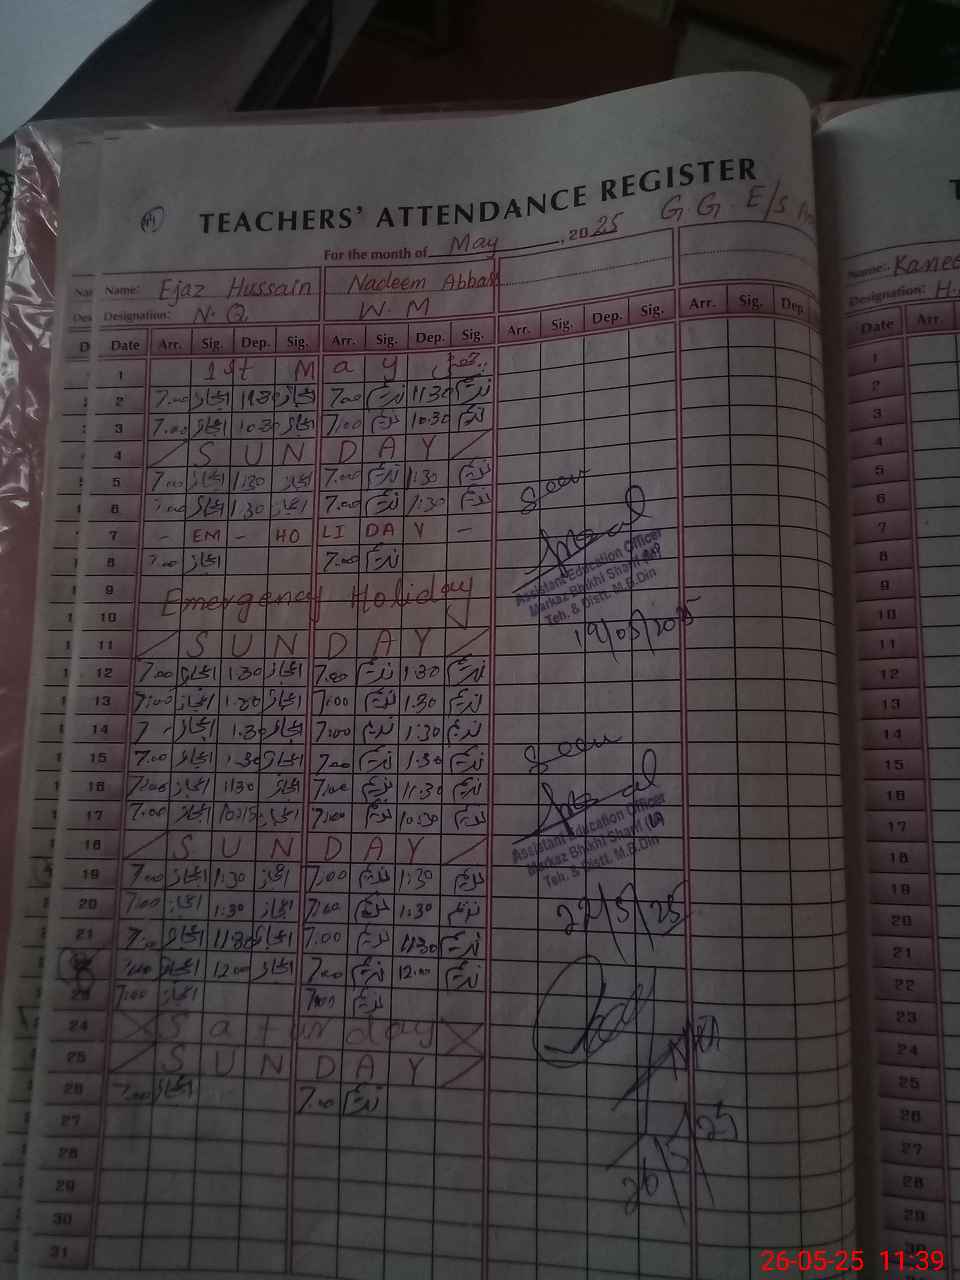 TEACHERS' ATTENDANCE REGISTER
G. G. E/S
For the month of May, 2025
Name: Ejaz Hussain Nadeem Abbas
Designation: N. Q W. M
Date Arr. Sig. Dep. Sig. Arr. Sig. Dep. Sig. Arr. Sig. Dep. Sig. Arr. Sig. Dep.
1 1st May
2 7:00 اعجاز 11:30 اعجاز 7:00 ندیم 11:30 ندیم
3 7:00 اعجاز 10:30 اعجاز 7:00 ندیم 10:30 ندیم
4 SUNDAY
5 7:00 اعجاز 1:30 اعجاز 7:00 ندیم 1:30 ندیم
6 7:00 اعجاز 1:30 اعجاز 7:00 ندیم 1:30 ندیم
7 - EM - HO LI DA Y -
8 7:00 اعجاز 7:00 ندیم
9 Emergency Holiday
10
11 SUNDAY
12 7:00 اعجاز 1:30 اعجاز 7:00 ندیم 1:30 ندیم
13 7:00 اعجاز 1:30 اعجاز 7:00 ندیم 1:30 ندیم
14 7 - اعجاز 1:30 اعجاز 7:00 ندیم 1:30 ندیم
15 7:00 اعجاز 1:30 اعجاز 7:00 ندیم 1:30 ندیم
16 7:00 اعجاز 11:30 اعجاز 7:00 ندیم 11:30 ندیم
17 7:00 اعجاز 10:15 اعجاز 7:00 ندیم 10:30 ندیم
18 SUNDAY
19 7:00 اعجاز 1:30 اعجاز 7:00 ندیم 1:30 ندیم
20 7:00 اعجاز 1:30 اعجاز 7:00 ندیم 1:30 ندیم
21 7:00 اعجاز 11:30 اعجاز 7:00 ندیم 11:30 ندیم
7:00 اعجاز 12:00 اعجاز 7:00 ندیم 12:00 ندیم
23 7:00 اعجاز 7:00 ندیم
24 Saturday
25 SUNDAY
26 7:00 اعجاز 7:00 ندیم
27
28
29
30
31
Seen
Assistant Education Officer
Markaz Bhikhi Sharif (W)
Teh. & Distt. M.B.Din
19/05/2025
Seen
Assistant Education Officer
Markaz Bhikhi Sharif (W)
Teh. & Distt. M.B.Din
22/5/25
26/5/25
Name:
Designation: H.
Date Arr.
1
2
3
4
5
6
7
8
9
10
11
12
13
14
15
16
17
18
19
20
21
22
23
24
25
26
27
28
29
30
26-05-25 11:39